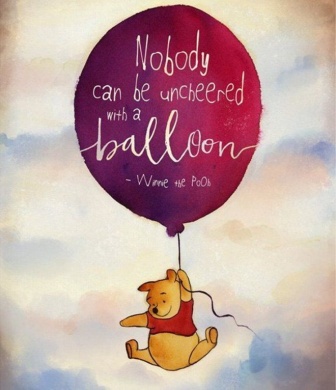 Nobody
can be uncheered
with a
balloon
~ Winnie the Pooh